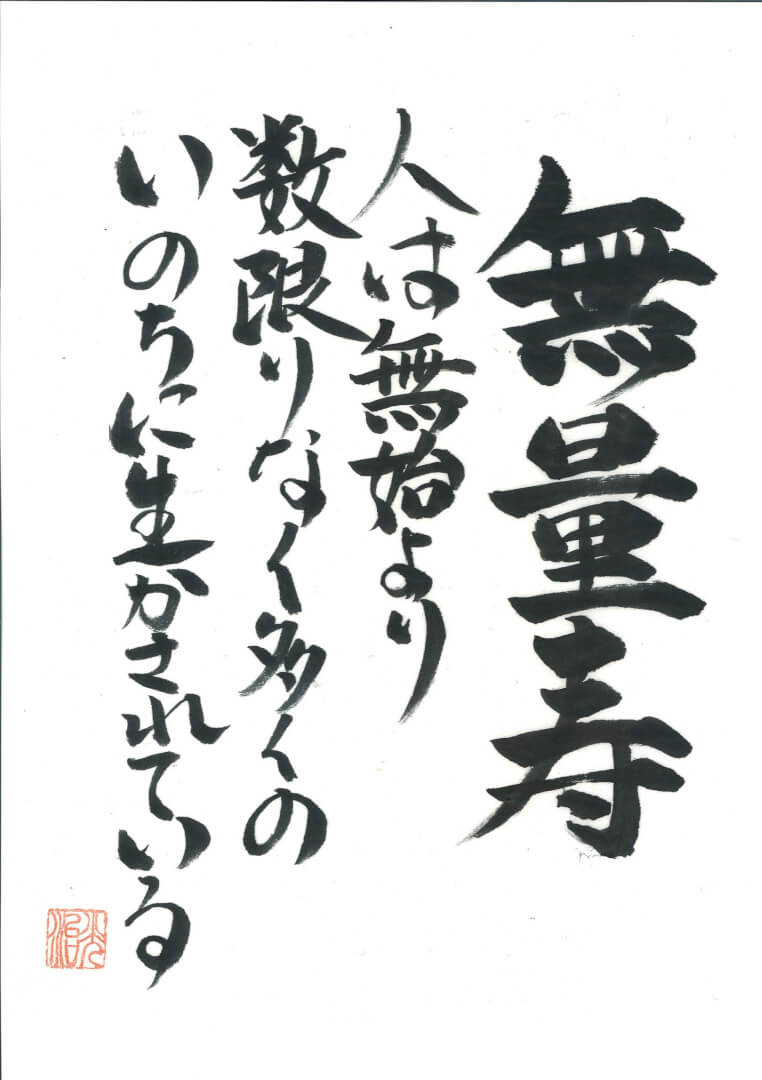 無量寿
人は無始より
数限りなく多くの
いのちに生かされている